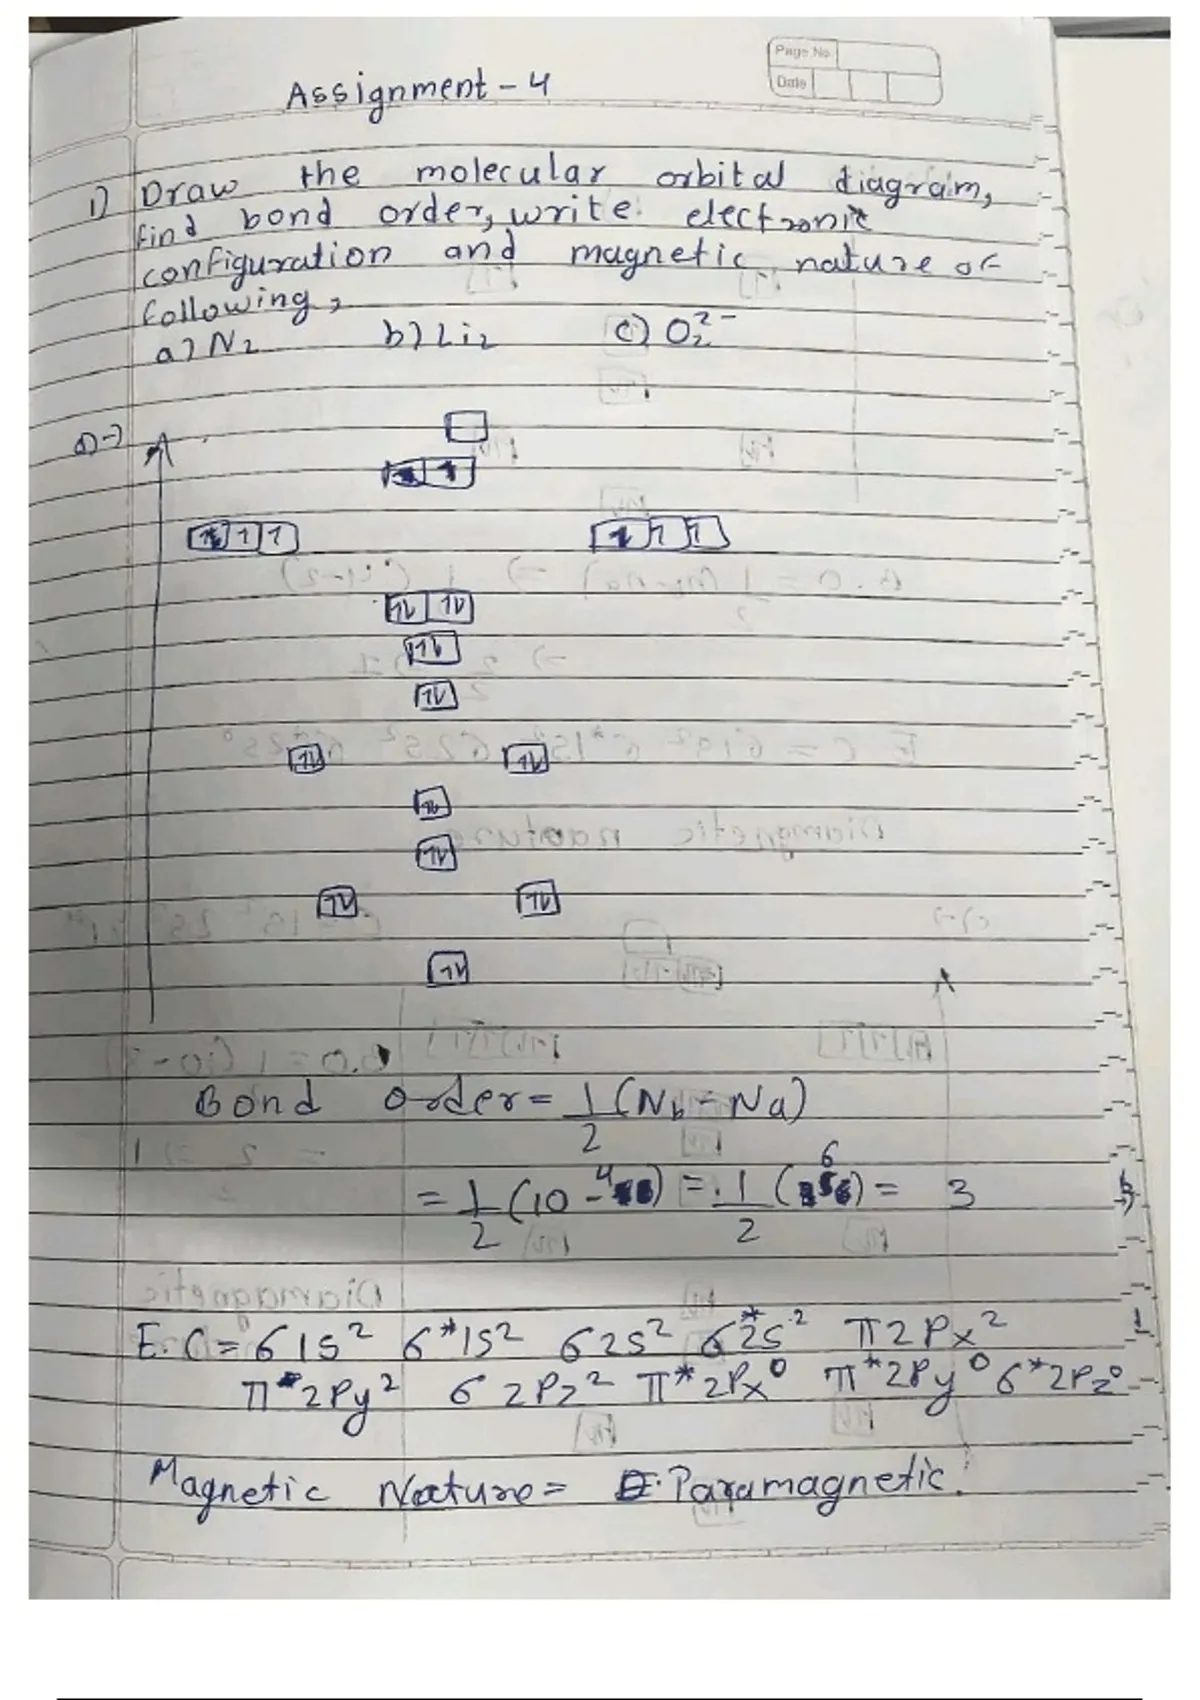 Page No.
Date
Assignment - 4
1) Draw the molecular orbital diagram,
find bond order, write electronic
configuration and magnetic nature of
following,
a) N₂ b) Li₂ c) O₂²⁻
a)→
1 1 1
1 1
1↓ 1↓
1↓
1↓
1↓ 1↓
1↓
1↓
1↓ 1↓
1↓
Bond Order = 1/2 (Nb - Na)
= 1/2 (10 - 4) = 1/2 (6) = 3
E.C = σ1s² σ*1s² σ2s² σ*2s² π2Px²
π2Py² σ2Pz² π*2Px⁰ π*2Py⁰ σ*2Pz⁰
Magnetic Nature = Paramagnetic.